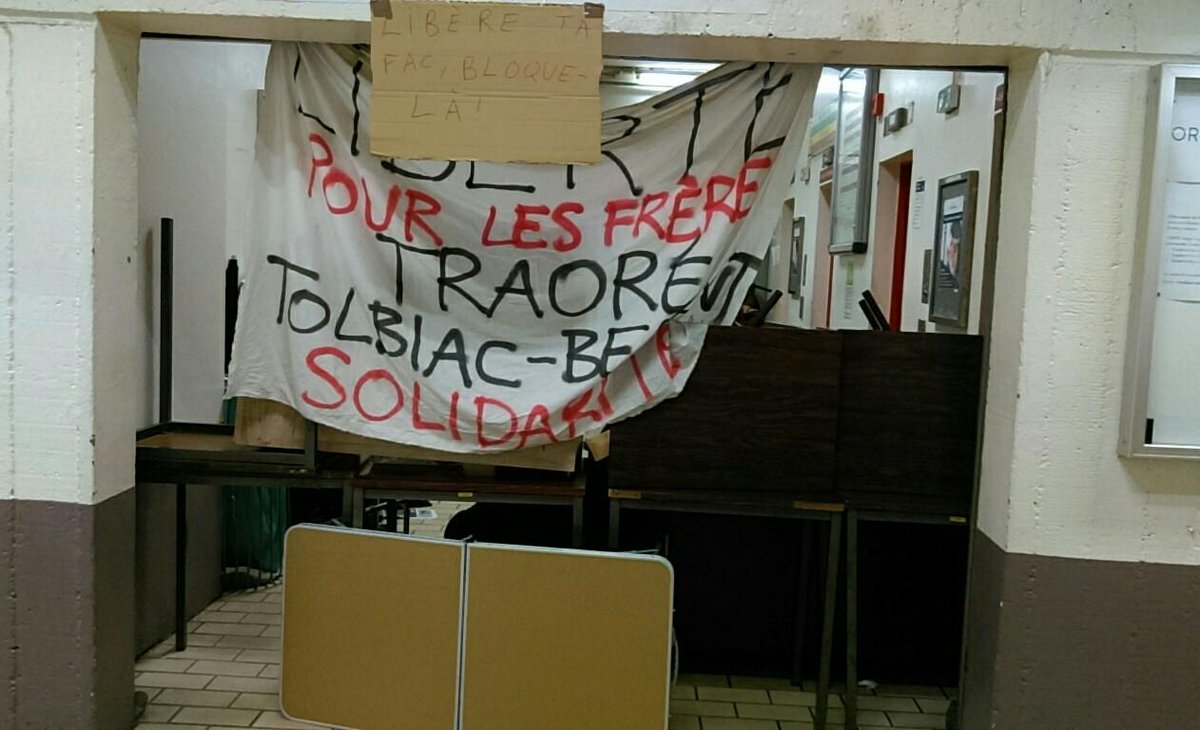 LIBÈRE TA
FAC, BLOQUE-
LA!
LIBERTÉ
POUR LES FRÈRE
TRAORE
TOLBIAC-BE
SOLIDARITE
OR